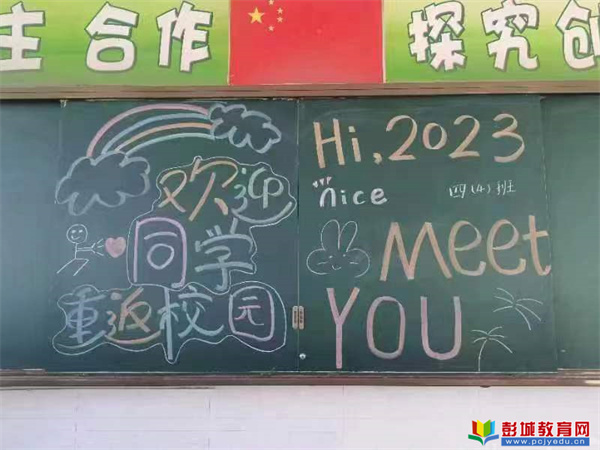 主合作
探究创
欢迎
同学
重返校园
Hi,2023
nice
四(4)班
Meet
YOU
彭城教育网
www.pcjyedu.cn